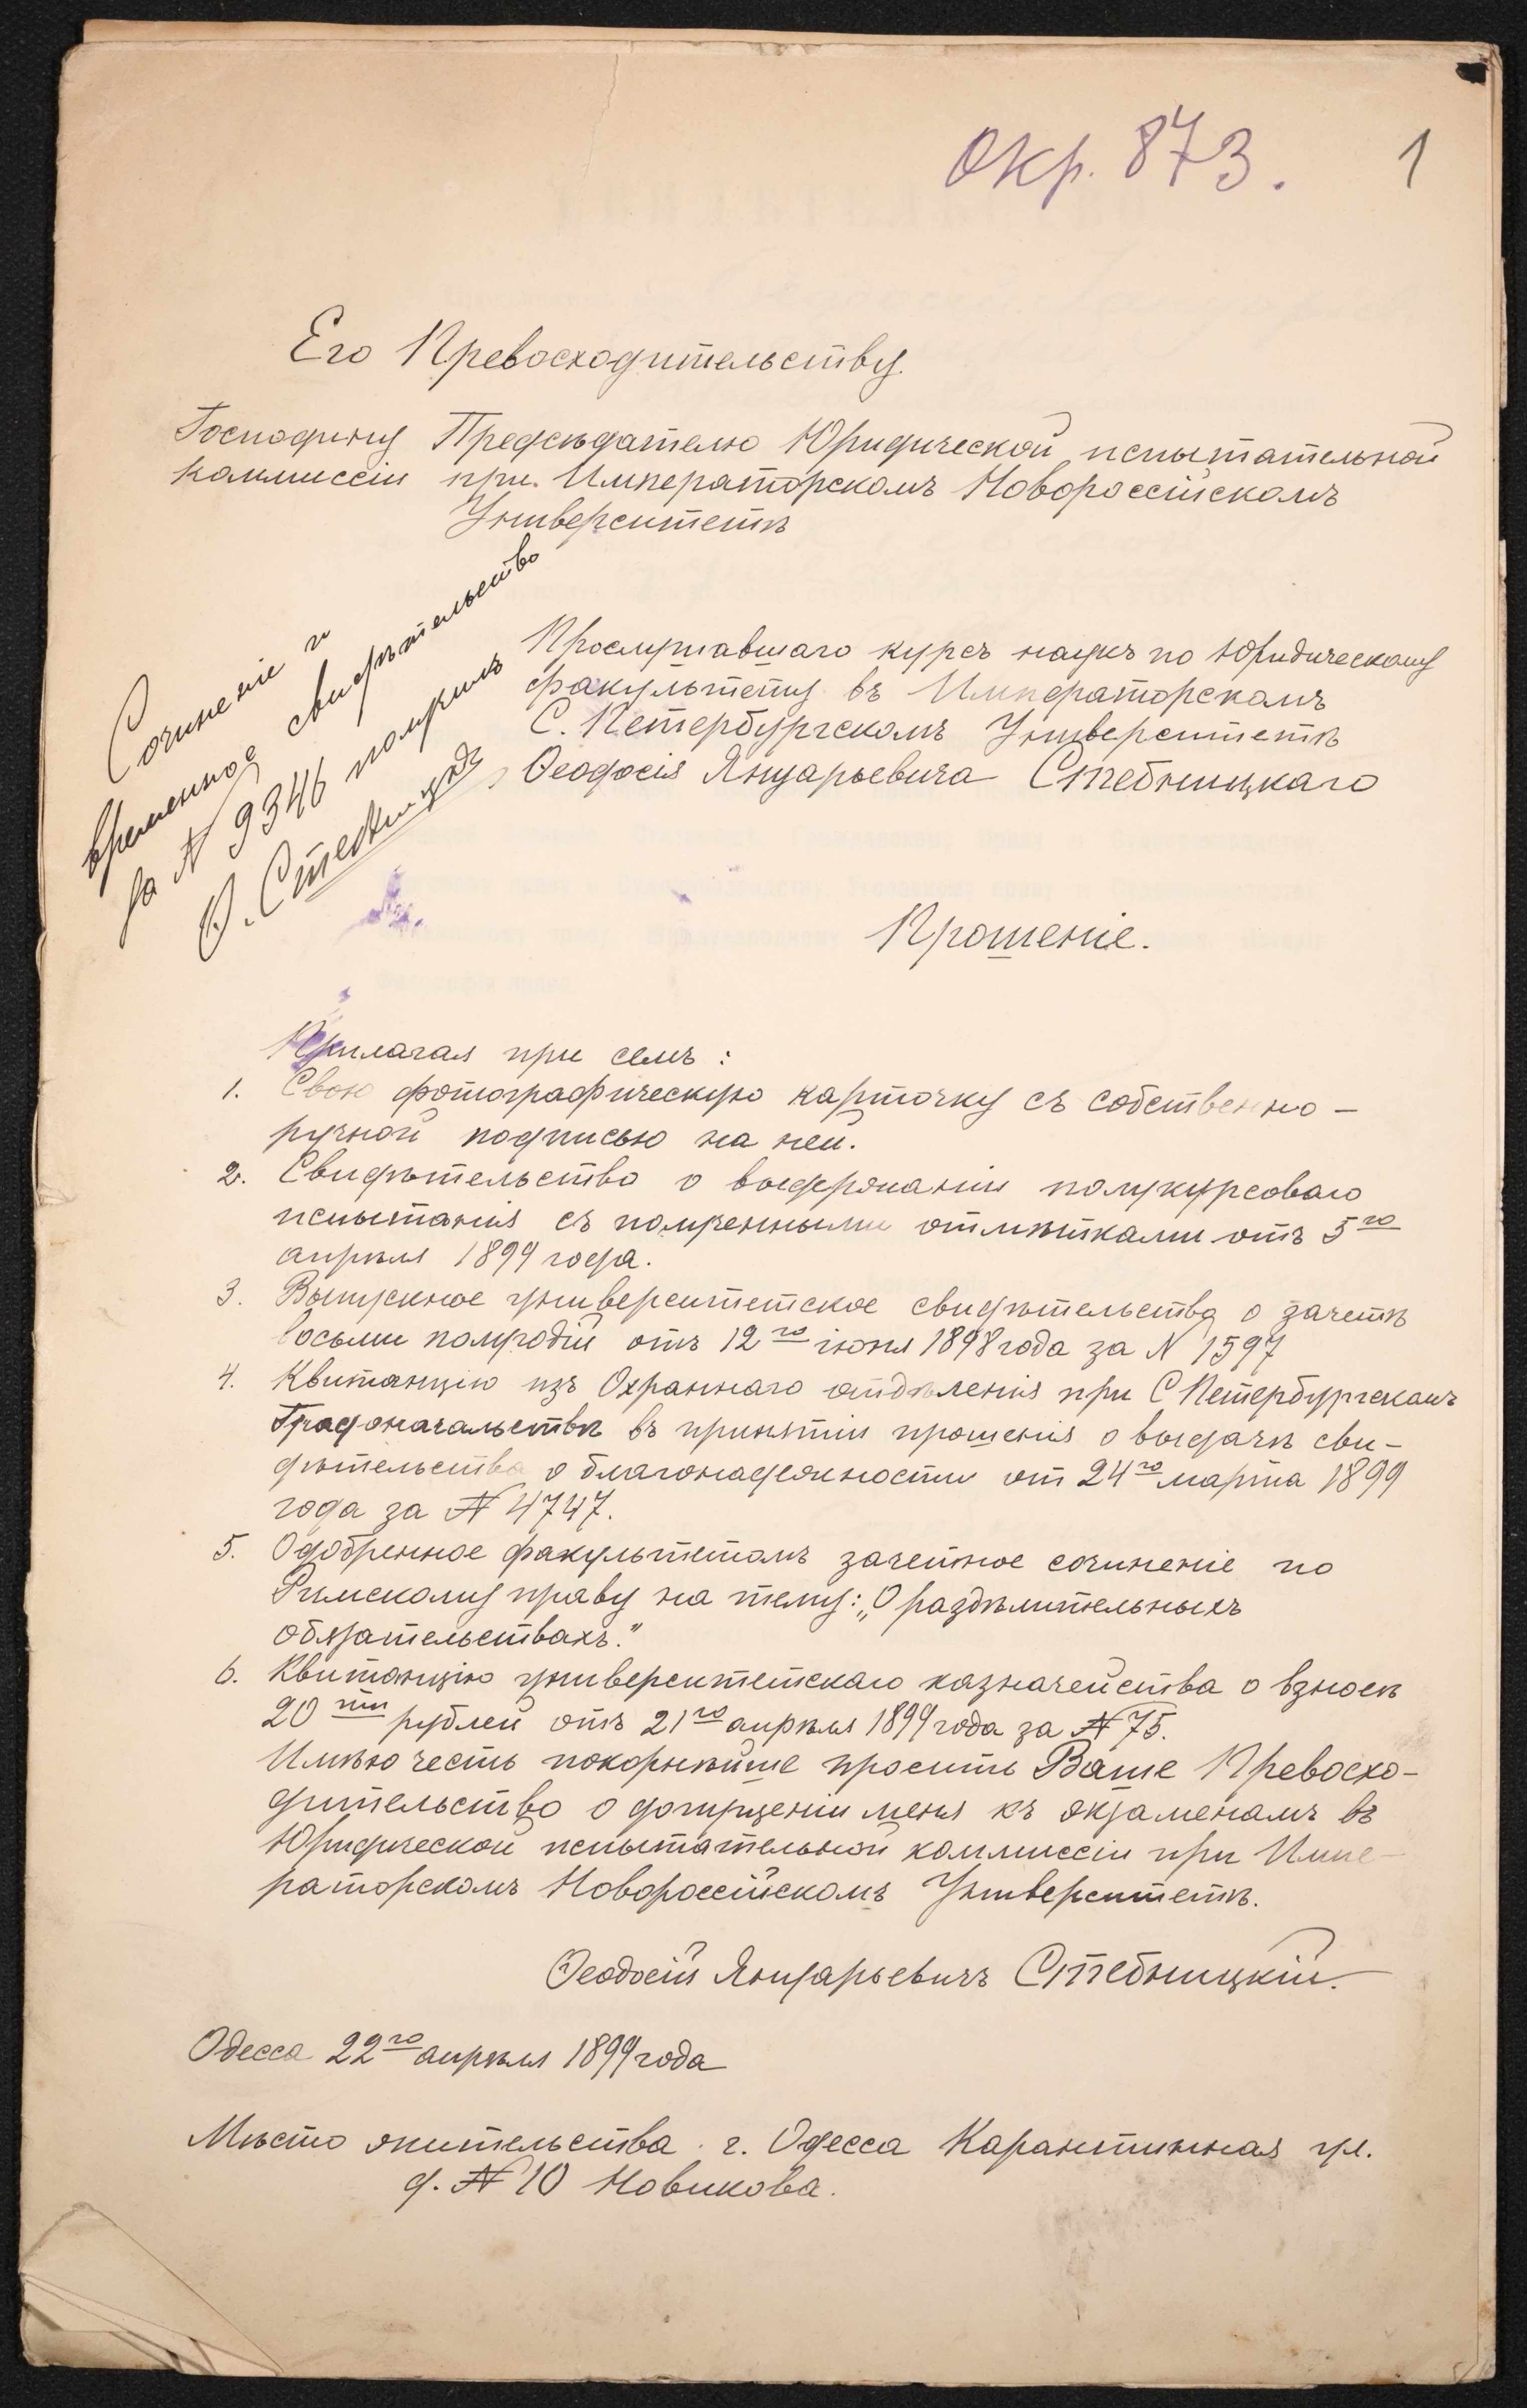 Окр. 873.
1
Его Превосходительству.
Господину Предсѣдателю Юридической испытательной
коммиссіи при Императорскомъ Новороссійскомъ
Университетѣ
Сочиненіе и
временное свидѣтельство
за № 9346 получилъ
Ѳ. Стебницкій
Прослушавшаго курсъ наукъ по Юридическому
факультету въ Императорскомъ
С. Петербургскомъ Университетѣ
Ѳеодосія Януарьевича Стебницкаго
Прошеніе.
Прилагая при семъ:
1. Свою фотографическую карточку съ собственно-
ручной подписью на ней.
2. Свидѣтельство о выдержаніи полукурсоваго
испытанія съ полученными отмѣтками отъ 5го
апрѣля 1899 года.
3. Выпускное университетское свидѣтельство о зачетѣ
восьми полугодій отъ 12го іюня 1898 года за N 1597
4. Квитанцію изъ Охраннаго отдѣленія при С Петербургскомъ
Градоначальствѣ въ принятіи прошенія о выдачѣ сви-
дѣтельства о благонадежности от 24го марта 1899
года за № 4747.
5. Одобренное факультетомъ зачетное сочиненіе по
Римскому праву на тему: „О раздѣлительныхъ
обязательствахъ."
6. Квитанцію университетскаго казначейства о взносѣ
20ти рублей отъ 21го апрѣля 1899 года за № 75.
Имѣю честь покорнѣйше просить Ваше Превосхо-
дительство о допущеніи меня къ экзаменамъ въ
Юридической испытательной коммиссіи при Импе-
раторскомъ Новороссійскомъ Университетѣ.
Ѳеодосій Януарьевичъ Стебницкій.
Одесса 22го апрѣля 1899 года
Мѣсто жительства. г. Одесса Карантинная ул.
д. № 10 Новикова.